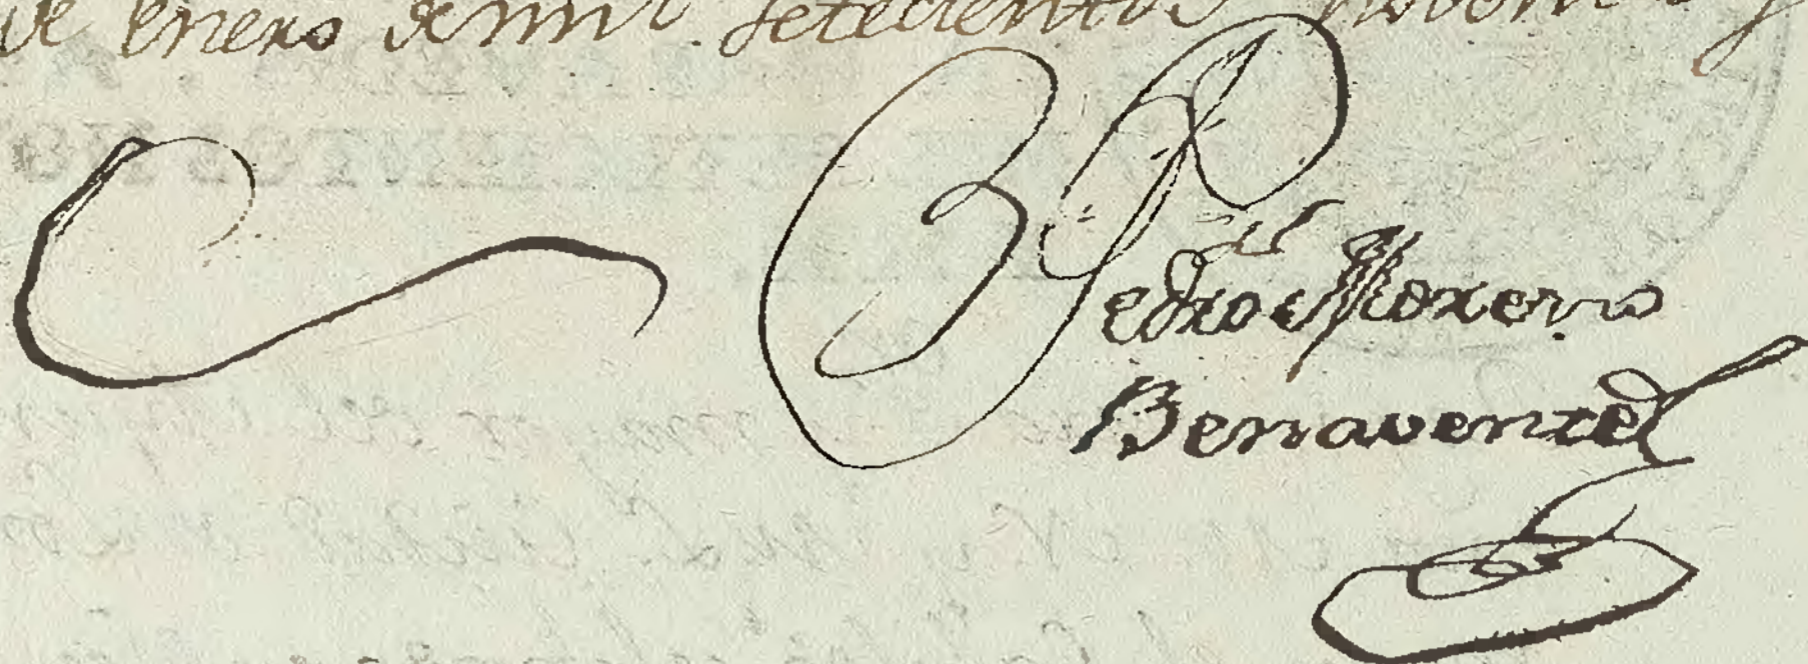 de enero de mil setecientos noventa y
Pedro Moreno
Benavente